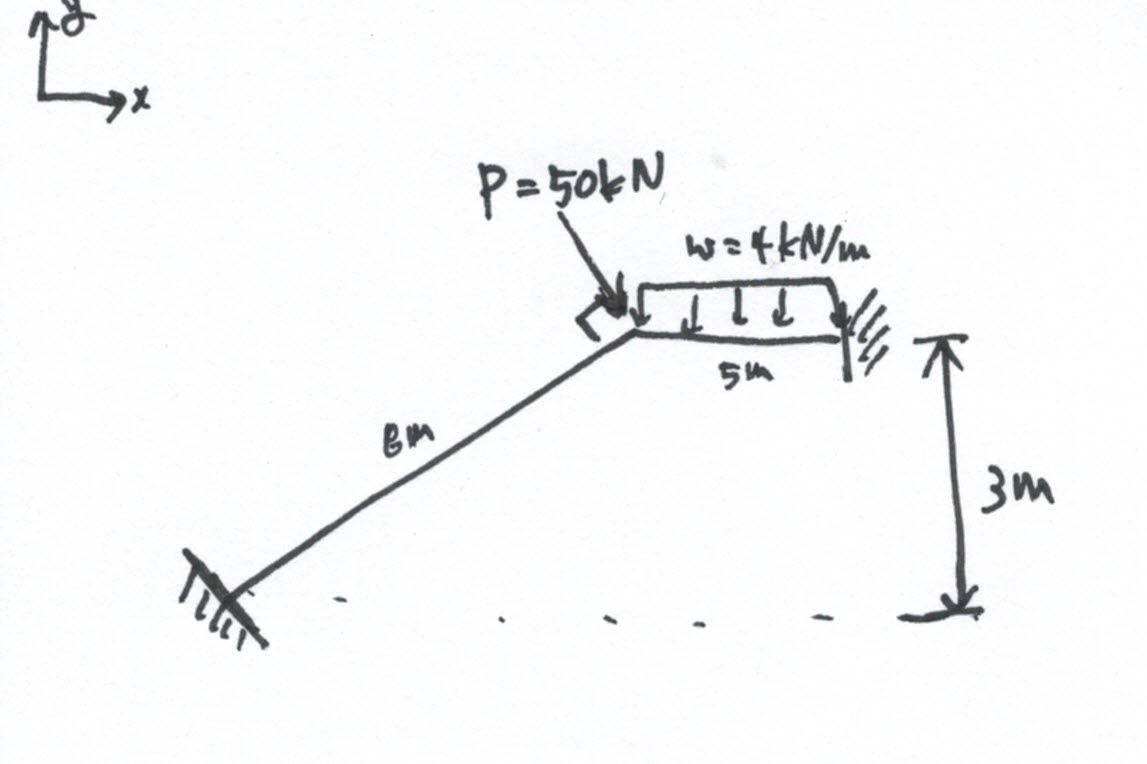 y
x
P = 50kN
w = 4 kN/m
5m
6m
3m